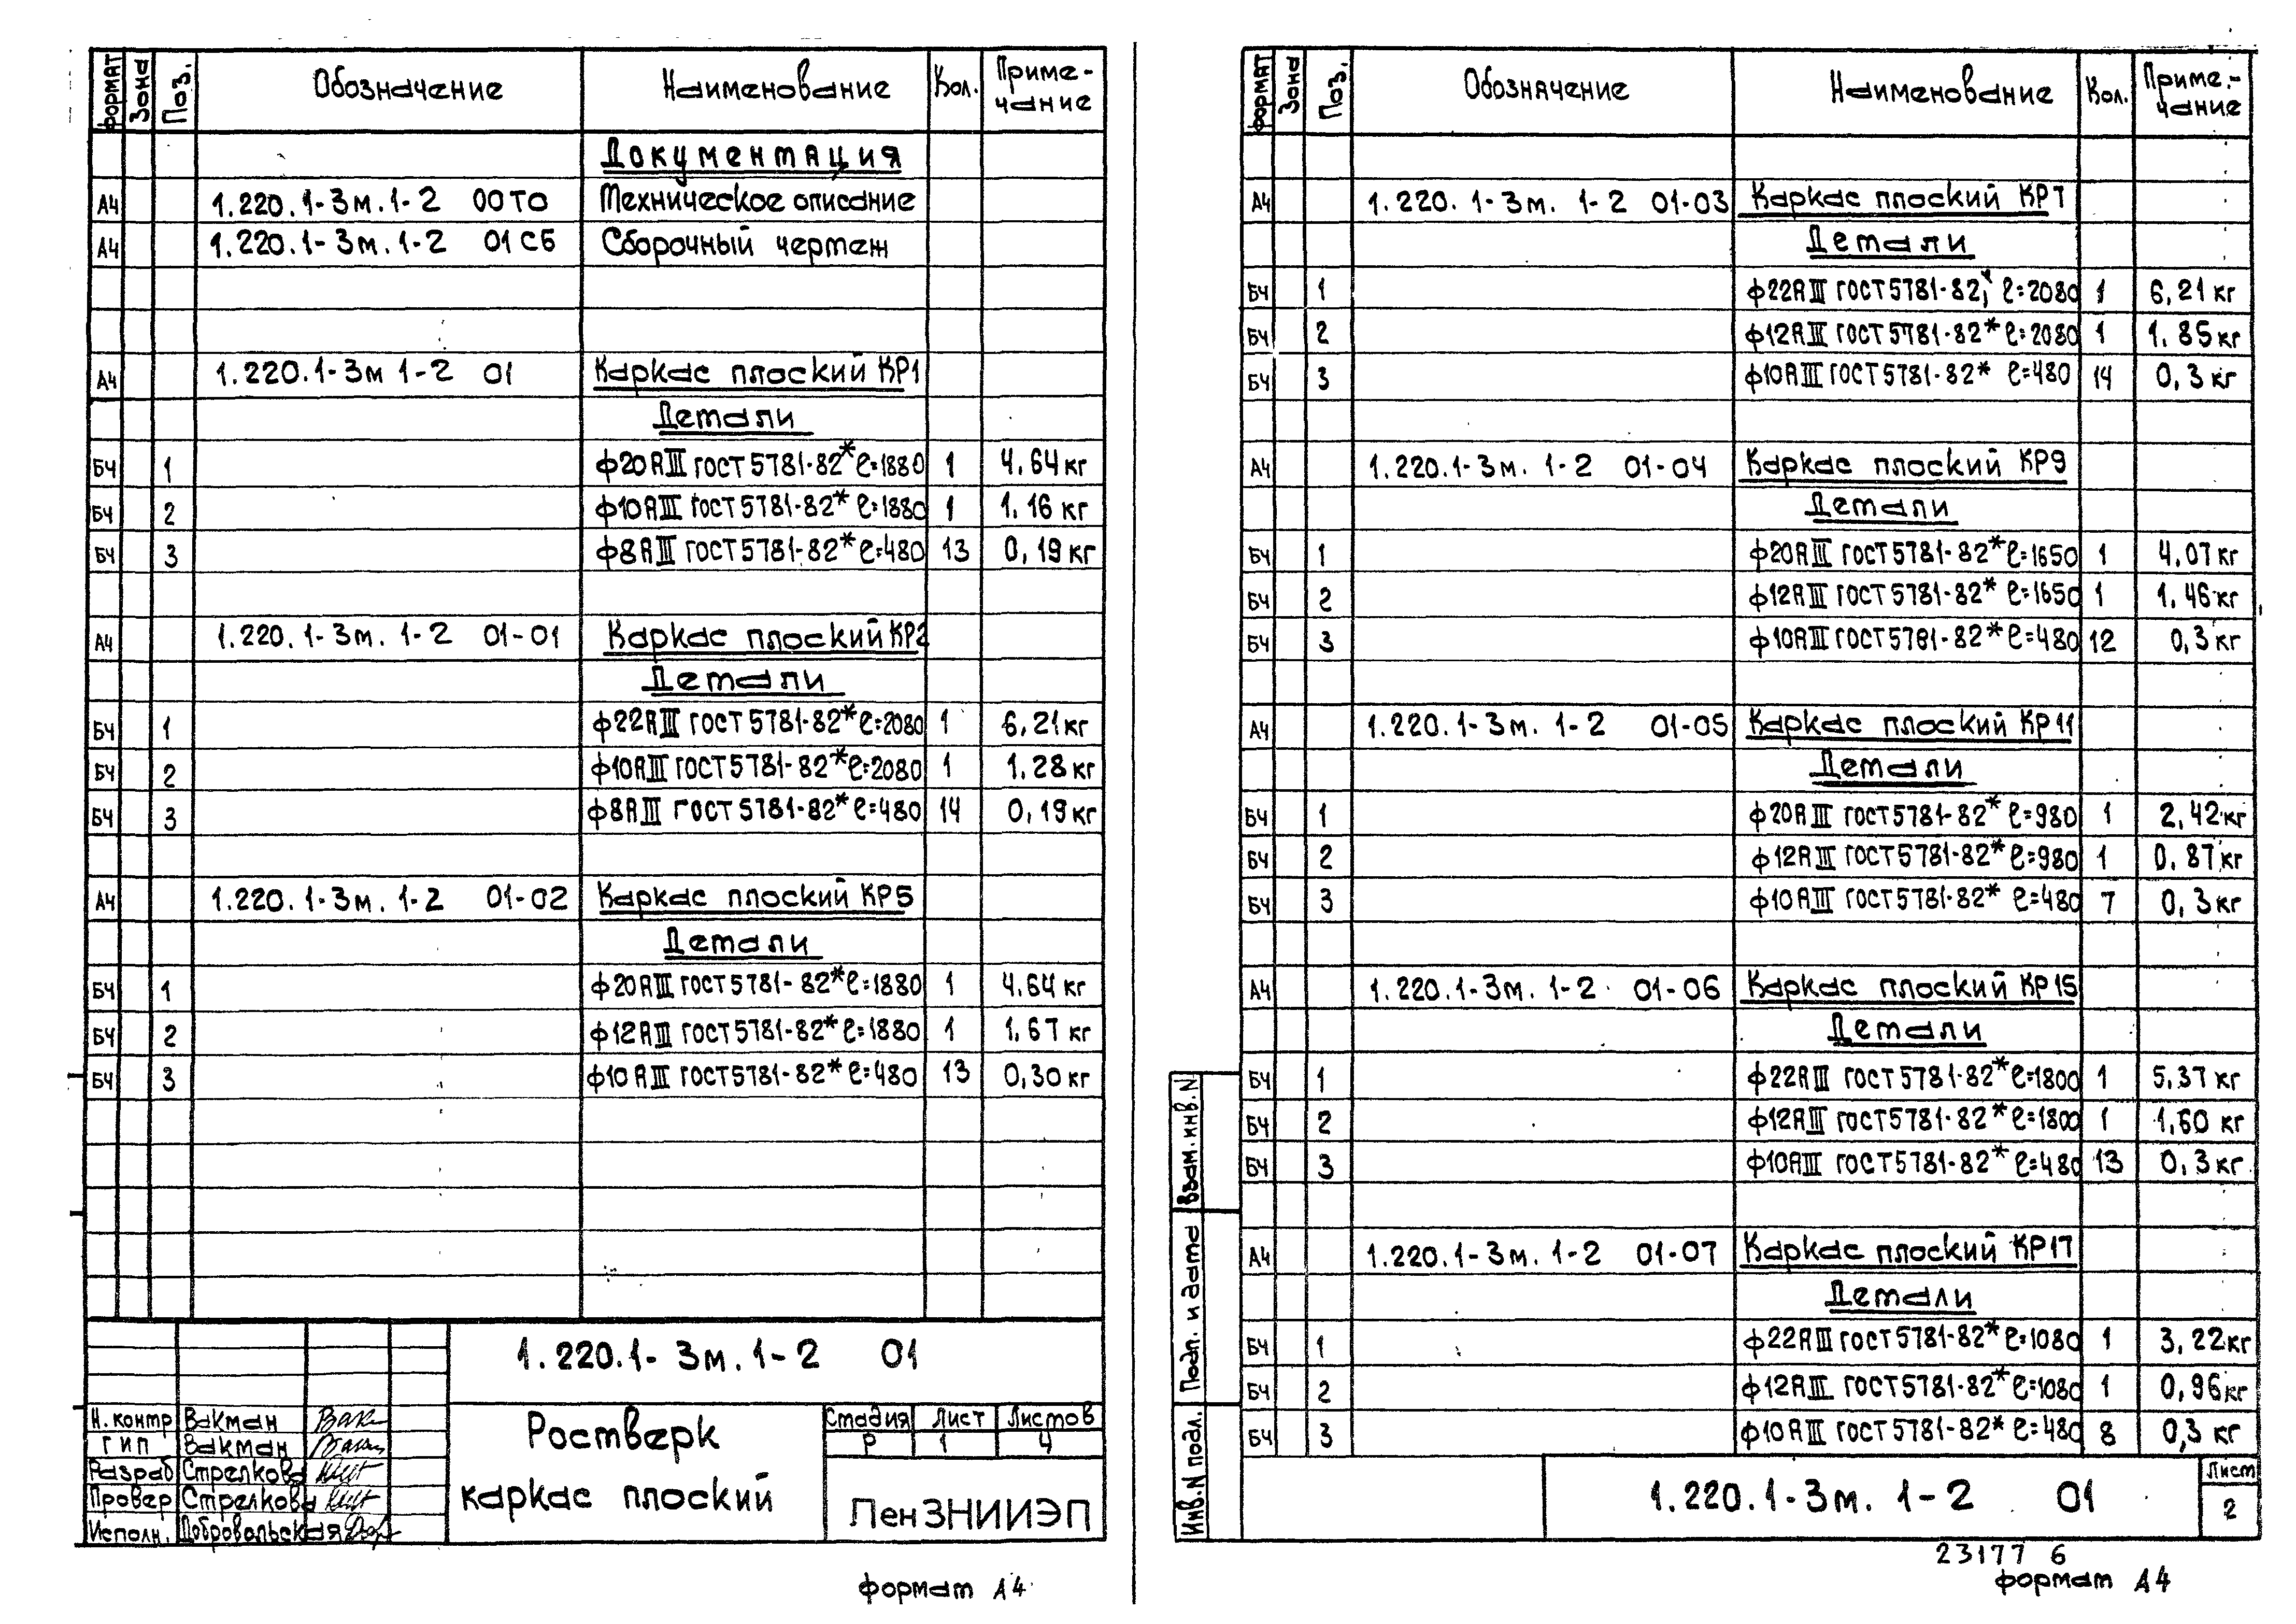 Формат Зона Поз. Обозначение Наименование Кол. Приме-чание
Документация
А4 1.220.1-3м.1-2 00ТО Техническое описание
А4 1.220.1-3м.1-2 01СБ Сборочный чертеж
А4 1.220.1-3м 1-2 01 Каркас плоский КР1
Детали
БЧ 1 ф20АIII ГОСТ 5781-82* ℓ=1880 1 4.64 кг
БЧ 2 ф10АIII ГОСТ 5781-82* ℓ=1880 1 1.16 кг
БЧ 3 ф8АIII ГОСТ 5781-82* ℓ=480 13 0,19 кг
А4 1.220.1-3м.1-2 01-01 Каркас плоский КР2
Детали
БЧ 1 ф22АIII ГОСТ 5781-82* ℓ=2080 1 6,21 кг
БЧ 2 ф10АIII ГОСТ 5781-82* ℓ=2080 1 1.28 кг
БЧ 3 ф8АIII ГОСТ 5781-82* ℓ=480 14 0,19 кг
А4 1.220.1-3м.1-2 01-02 Каркас плоский КР5
Детали
БЧ 1 ф20АIII ГОСТ 5781-82* ℓ=1880 1 4.64 кг
БЧ 2 ф12АIII ГОСТ 5781-82* ℓ=1880 1 1,67 кг
БЧ 3 ф10АIII ГОСТ 5781-82* ℓ=480 13 0,30 кг
1.220.1-3м.1-2 01
Н.контр Вакман
ГИП Вакман
Разраб Стрелкова
Провер Стрелкова
Исполн. Добровольская
Ростверк
каркас плоский
Стадия Лист Листов
Р 1 4
ПенЗНИИЭП
формат А4
Формат Зона Поз. Обозначение Наименование Кол. Приме.-чание
А4 1.220.1-3м. 1-2 01-03 Каркас плоский КР7
Детали
БЧ 1 ф22АIII ГОСТ 5781-82* ℓ=2080 1 6,21 кг
БЧ 2 ф12АIII ГОСТ 5781-82* ℓ=2080 1 1.85 кг
БЧ 3 ф10АIII ГОСТ 5781-82* ℓ=480 14 0,3 кг
А4 1.220.1-3м. 1-2 01-04 Каркас плоский КР9
Детали
БЧ 1 ф20АIII ГОСТ 5781-82* ℓ=1650 1 4,07 кг
БЧ 2 ф12АIII ГОСТ 5781-82* ℓ=1650 1 1.46 кг
БЧ 3 ф10АIII ГОСТ 5781-82* ℓ=480 12 0,3 кг
А4 1.220.1-3м. 1-2 01-05 Каркас плоский КР11
Детали
БЧ 1 ф20АIII ГОСТ 5781-82* ℓ=980 1 2,42 кг
БЧ 2 ф12АIII ГОСТ 5781-82* ℓ=980 1 0.87 кг
БЧ 3 ф10АIII ГОСТ 5781-82* ℓ=480 7 0,3 кг
А4 1.220.1-3м. 1-2 01-06 Каркас плоский КР15
Детали
БЧ 1 ф22АIII ГОСТ 5781-82* ℓ=1800 1 5.37 кг
БЧ 2 ф12АIII ГОСТ 5781-82* ℓ=1800 1 1,60 кг
БЧ 3 ф10АIII ГОСТ 5781-82* ℓ=480 13 0,3 кг
А4 1.220.1-3м. 1-2 01-07 Каркас плоский КР17
Детали
БЧ 1 ф22АIII ГОСТ 5781-82* ℓ=1080 1 3,22 кг
БЧ 2 ф12АIII ГОСТ 5781-82* ℓ=1080 1 0,96 кг
БЧ 3 ф10АIII ГОСТ 5781-82* ℓ=480 8 0,3 кг
Взам.инв.N
Подп. и дата
Инв.N подл.
1.220.1-3м. 1-2 01
Лист
2
23177 6
формат А4